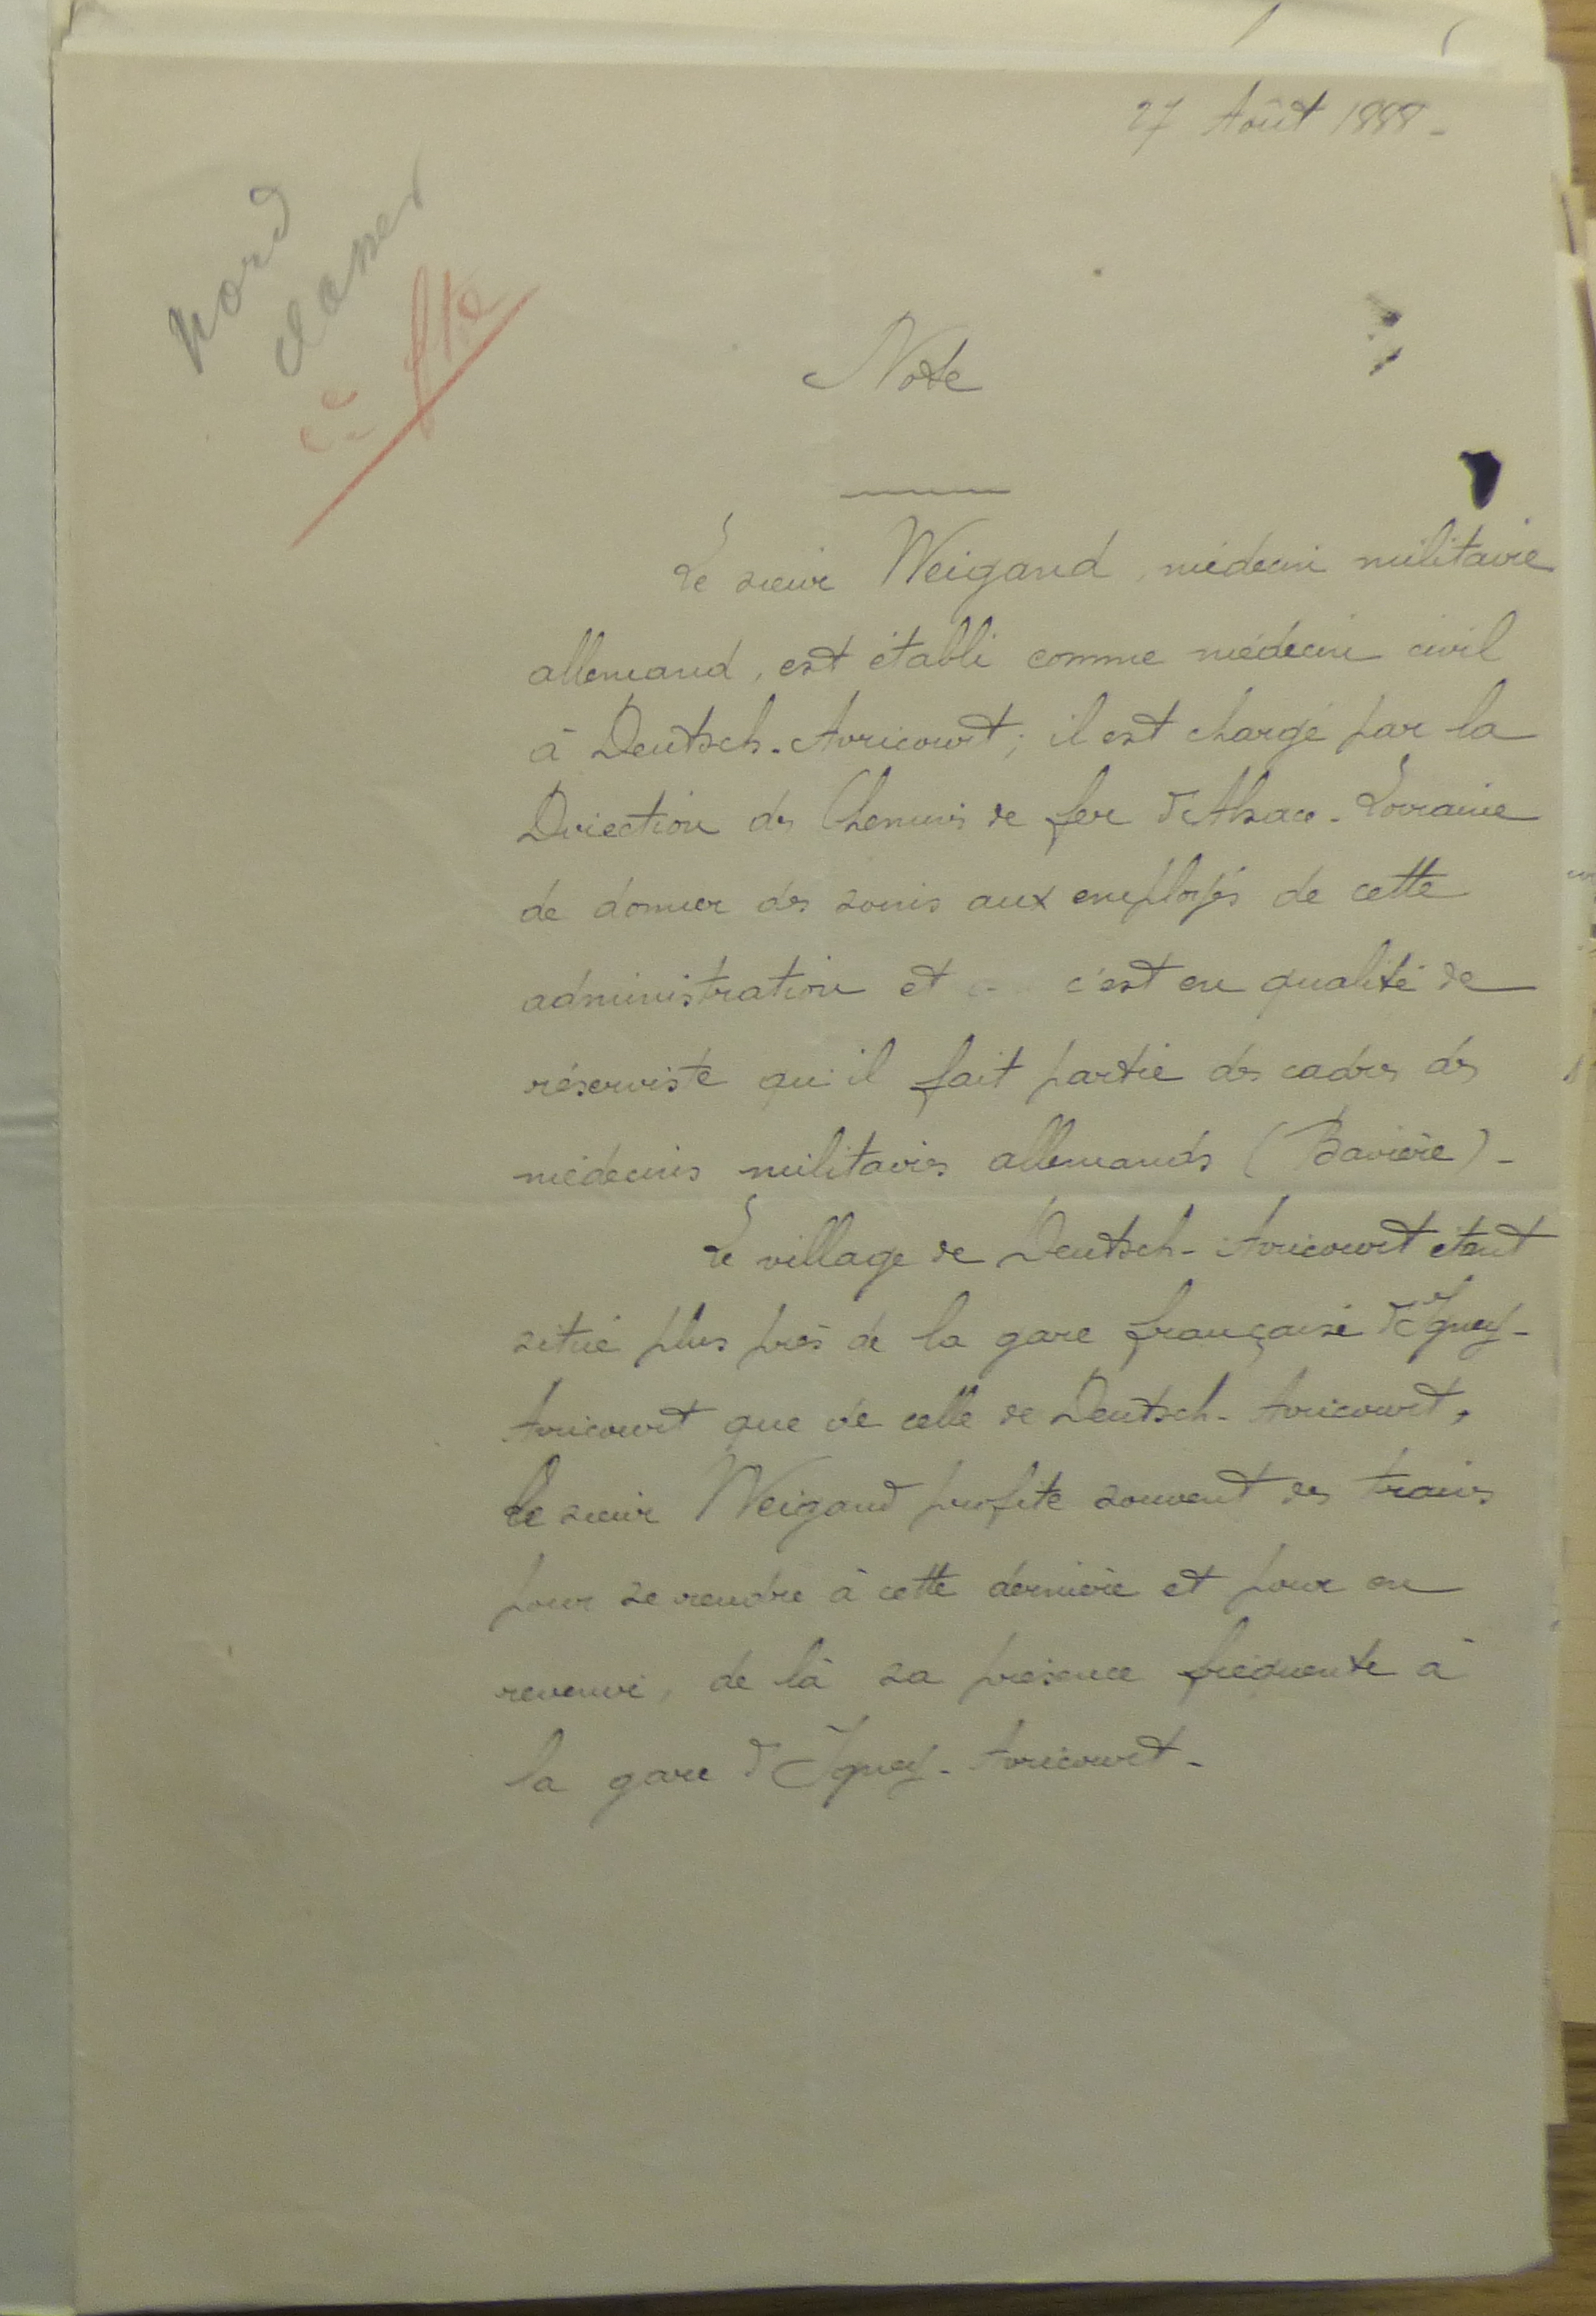 27 Août 1888 -
Nord
classer
Note
Le sieur Weigand, médecin militaire
allemand, est établi comme médecin civil
à Deutsch-Avricourt; il est chargé par la
Direction des Chemins de fer d'Alsace-Lorraine
de donner des soins aux employés de cette
administration et c'est en qualité de
réserviste qu'il fait partie des cadres des
médecins militaires allemands (Bavière) -
Le village de Deutsch-Avricourt étant
situé plus près de la gare française d'Igney-
Avricourt que de celle de Deutsch-Avricourt,
le sieur Weigand profite souvent des trains
pour se rendre à cette dernière et pour en
revenir, de là sa présence fréquente à
la gare d'Igney-Avricourt -